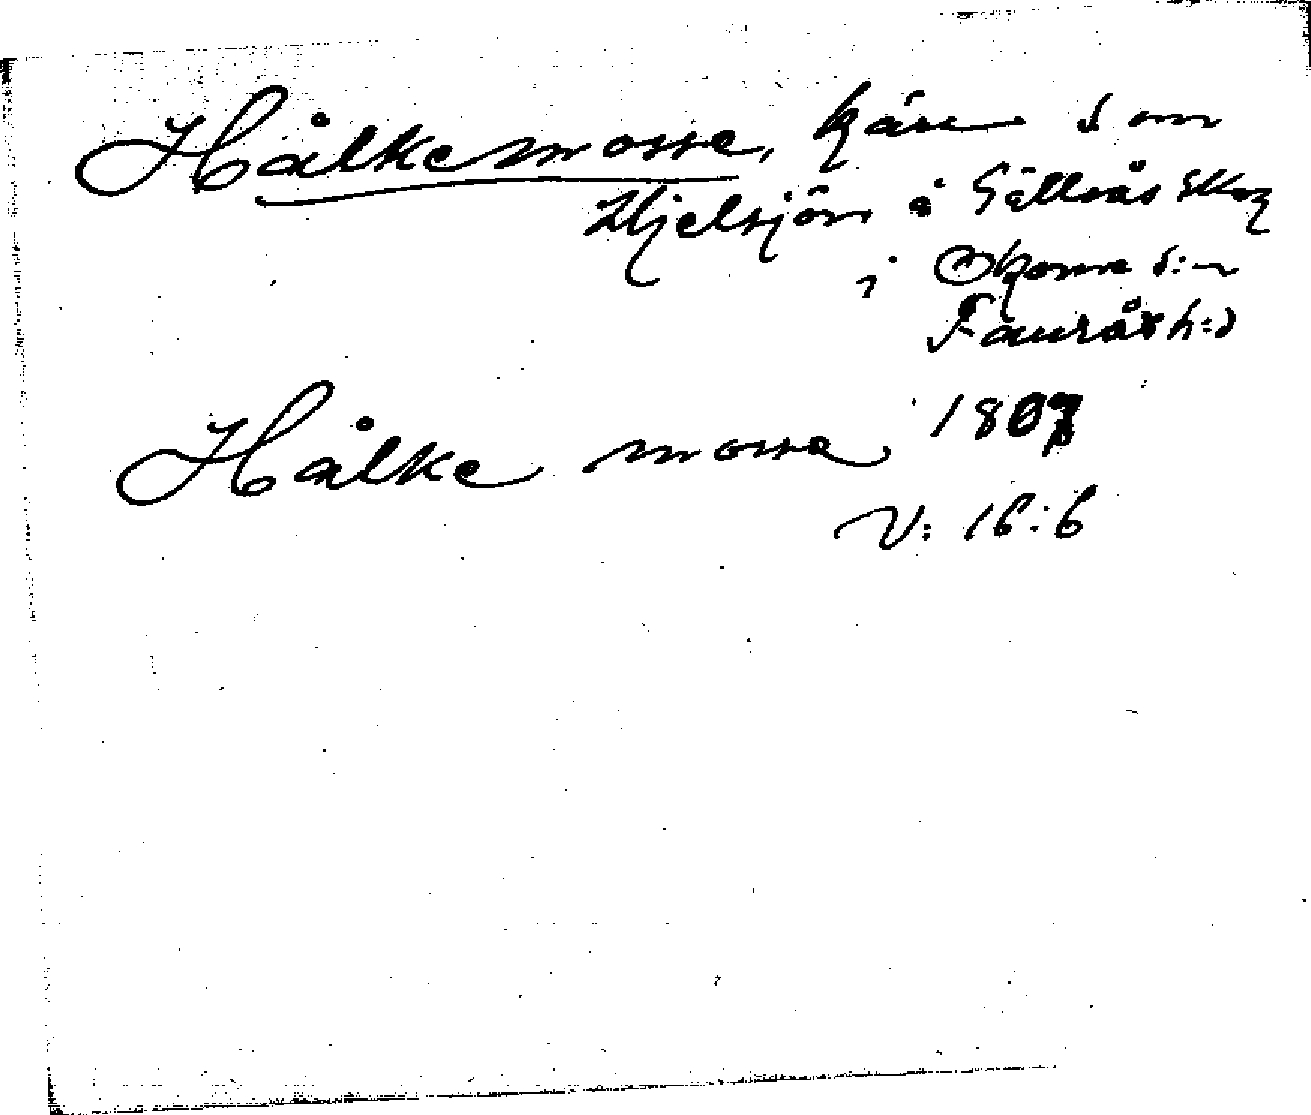 Hålkemosse, kärr som
Hjelsjön å Gällvås skog
i Okome s:n
Faurås h:d
Hålke mosse 1807
V: 16:6